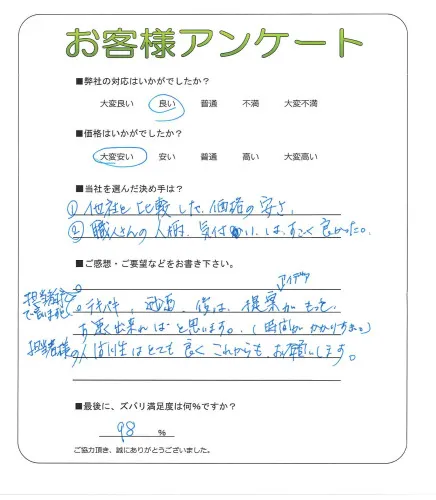 お客様アンケート
■弊社の対応はいかがでしたか?
大変良い 良い 普通 不満 大変不満
■価格はいかがでしたか?
大変安い 安い 普通 高い 大変高い
■当社を選んだ決め手は?
①他社と比較した、価格の安さ。
②職人さんの人柄、気付かいは、すごく良かった。
■ご感想・ご要望などをお書き下さい。
アイデア
提案がもっと
出来ればと思います。(時間がかかりすぎ。)
担当者様の人間性はとても良くこれからも、お願いします。
■最後に、ズバリ満足度は何%ですか?
98 %
ご協力頂き、誠にありがとうございました。